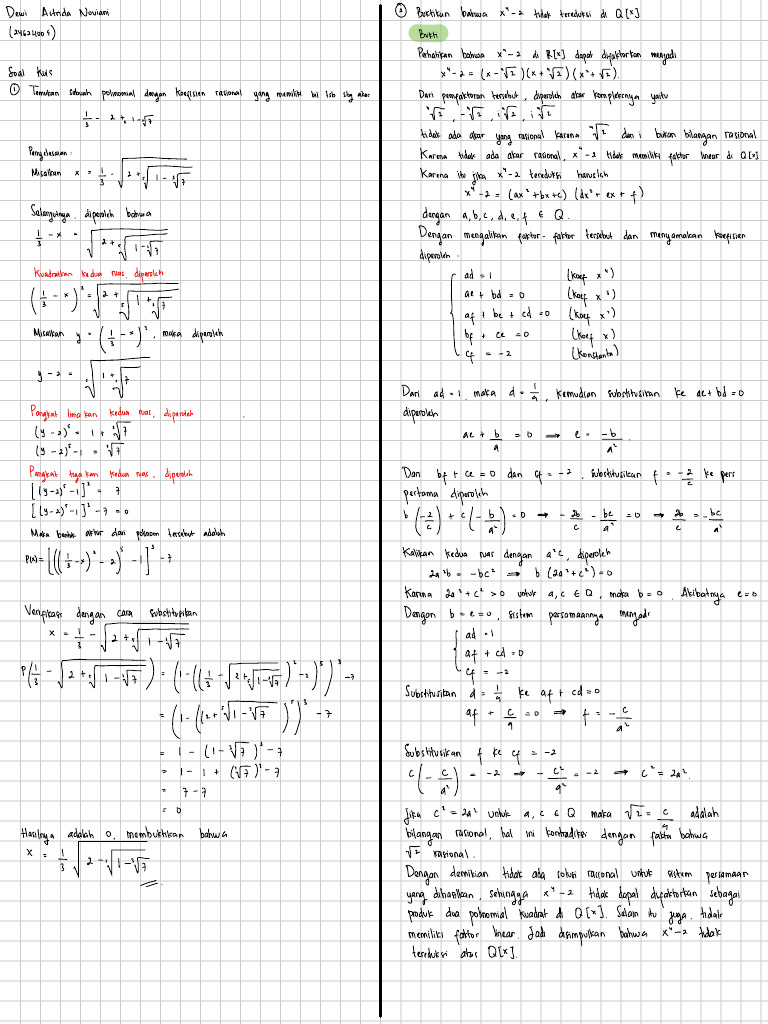 Dewi Astrida Noviani
(24626400 5)
Soal Kuis
① Temukan sebuah polinomial dengan koefisien rasional yang memiliki bil tsb sbg akar
1/3 - √(2 + ⁵√(1 - ³√7))
Penyelesaian :
Misalkan x = 1/3 - √(2 + ⁵√(1 - ³√7))
Selanjutnya, diperoleh bahwa
1/3 - x = √(2 + ⁵√(1 - ³√7))
Kuadratkan kedua ruas, diperoleh
(1/3 - x)² = √(2 + ⁵√(1 + ³√7))
Misalkan y = (1/3 - x)², maka diperoleh
y - 2 = ⁵√(1 + ³√7)
Pangkat lima kan kedua ruas, diperoleh
(y - 2)⁵ = 1 + ³√7
(y - 2)⁵ - 1 = ³√7
Pangkat tiga kan kedua ruas, diperoleh
[(y-2)⁵ - 1]³ = 7
[(y-2)⁵ - 1]³ - 7 = 0
Maka bentuk akhir dari polinom tersebut adalah
P(x) = [(((1/3 - x)² - 2)⁵ - 1]³ - 7
Verifikasi dengan cara substitusikan
x = 1/3 - √(2 + ⁵√(1 - ³√7))
P(1/3 - √(2 + ⁵√(1 - ³√7))) = (1 - ((1/3 - √(2 + ⁵√(1 - ³√7)))² - 2)⁵)³ - 7
= (1 - ((2 + ⁵√(1 - ³√7))⁵)³ - 7
= 1 - (1 - ³√7)³ - 7
= 1 - 1 + (³√7)³ - 7
= 7 - 7
= 0
Hasilnya adalah 0, membuktikan bahwa
x = 1/3 √(2 - ⁵√(1 - ³√7))
② Buktikan bahwa x⁴ - 2 tidak tereduksi di Q[x]
Bukti
Perhatikan bahwa x⁴ - 2 di R[x] dapat difaktorkan menjadi
x⁴ - 2 = (x - ⁴√2)(x + ⁴√2)(x² + √2).
Dari pemfaktoran tersebut, diperoleh akar kompleksnya yaitu
⁴√2, -⁴√2, i ⁴√2, i ⁴√2
tidak ada akar yang rasional karena ⁴√2 dan i bukan bilangan rasional.
Karena tidak ada akar rasional, x⁴ - 2 tidak memiliki faktor linear di Q[x]
Karena itu jika x⁴ - 2 tereduksi haruslah
x⁴ - 2 = (ax² + bx + c) (dx² + ex + f)
dengan a, b, c, d, e, f ∈ Q.
Dengan mengalikan faktor-faktor tersebut dan menyamakan koefisien
diperoleh :
ad = 1 (koef x⁴)
ae + bd = 0 (koef x³)
af + be + cd = 0 (koef x²)
bf + ce = 0 (koef x)
cf = -2 (konstanta)
Dari ad = 1, maka d = 1/a, kemudian substitusikan ke ae + bd = 0
diperoleh
ae + b/a = 0 ⟹ e = -b/a².
Dari bf + ce = 0 dan cf = -2, substitusikan f = -2/c ke pers
pertama diperoleh
b(-2/c) + c(-b/a²) = 0 → -2b/c - bc/a² = 0 → 2b/c = -bc/a²
Kalikan kedua ruas dengan a²c, diperoleh
2a²b = -bc² ⟹ b(2a² + c²) = 0
Karena 2a² + c² > 0 untuk a, c ∈ Q, maka b = 0. Akibatnya e = 0
Dengan b = e = 0, sistem persamaannya menjadi
ad = 1
af + cd = 0
cf = -2
Substitusikan d = 1/a ke af + cd = 0
af + c/a = 0 ⟹ f = -c/a²
Substitusikan f ke cf = -2
c(-c/a²) = -2 → -c²/a² = -2 ⟹ c² = 2a².
Jika c² = 2a² untuk a, c ∈ Q maka √2 = c/a adalah
bilangan rasional, hal ini kontradiksi dengan fakta bahwa
√2 rasional.
Dengan demikian tidak ada solusi rasional untuk sistem persamaan
yang dihasilkan, sehingga x⁴ - 2 tidak dapat difaktorkan sebagai
produk dua polinomial kuadrat di Q[x]. Selain itu juga, tidak
memiliki faktor linear. Jadi disimpulkan bahwa x⁴ - 2 tidak
tereduksi atas Q[x].